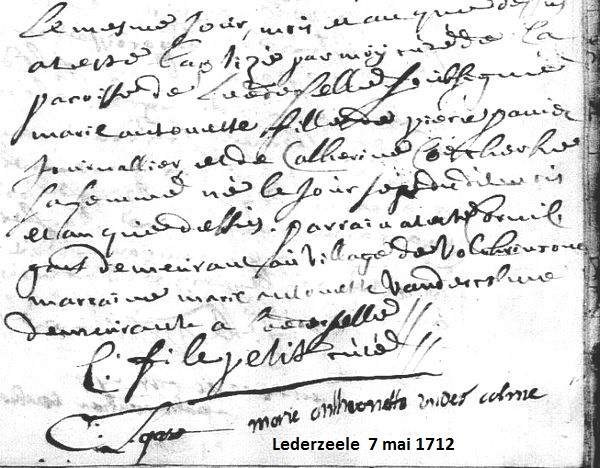 Le mesme Jour, mois et an que dessus
at esté baptizé par moy curé de la
paroisse de Lederselle soubsigné
marie antoinette fille de pierre
Journallier et de Catherine
sa femme né le Jour sept du dit mois
et an que dessus. parrain at esté
demeurant au village de Volckrincove
marraine marie antoinette Vandercolme
demeurante a Lederselle
C: f: le petit curé
marie anthonette vnder colme
Lederzeele 7 mai 1712